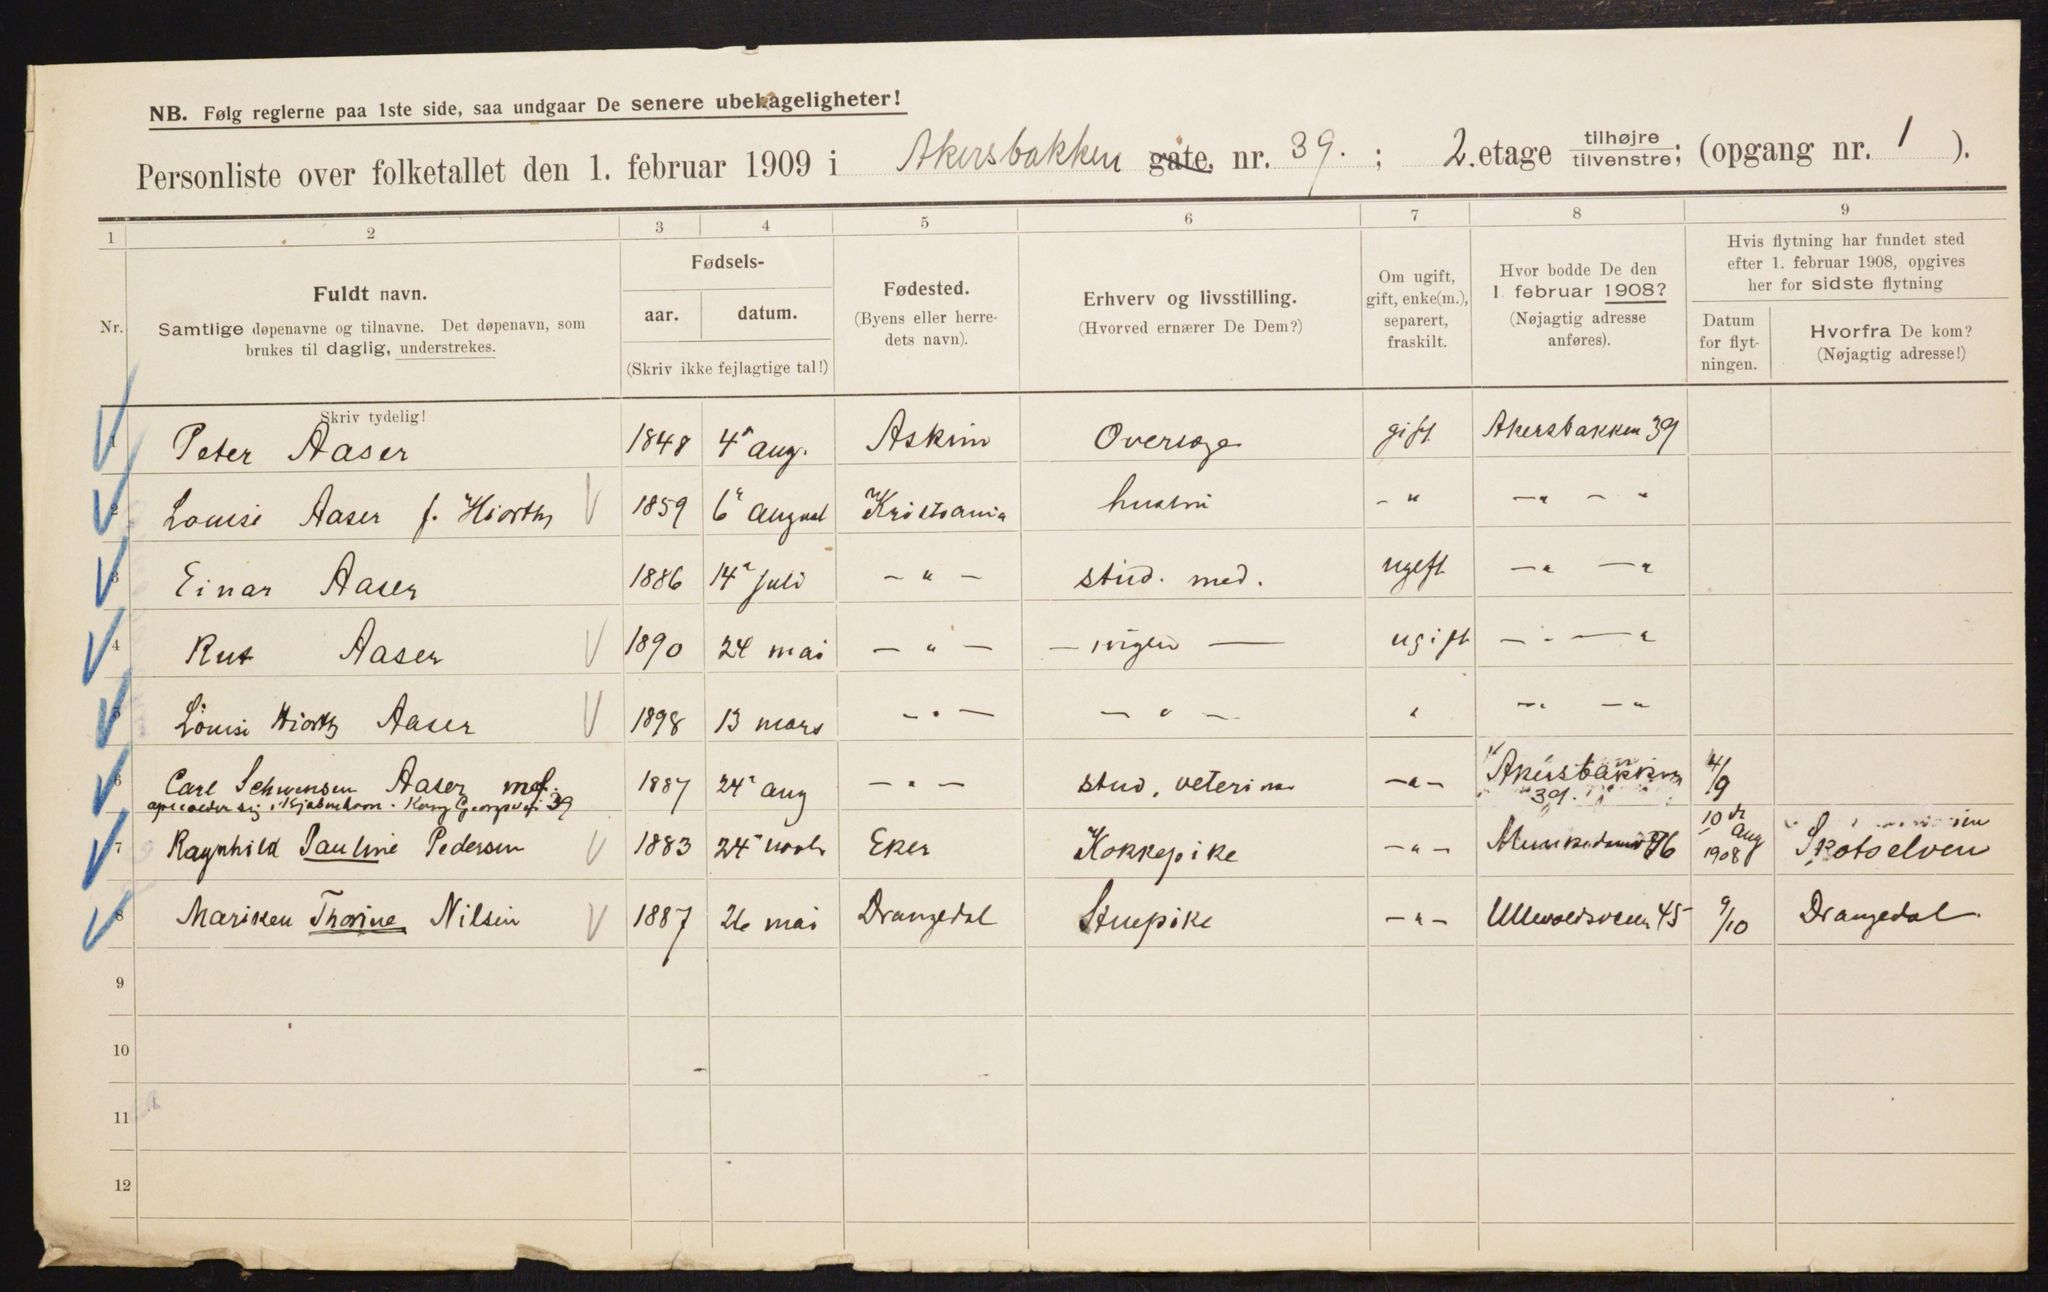 NB. Følg reglerne paa 1ste side, saa undgaar De senere ubekageligheter!
Personliste over folketallet den 1. februar 1909 i Akersbakken gate, nr. 39. ; 2. etage tilhøjre tilvenstre; (opgang nr. 1 ).
1 2 3 4 5 6 7 8 9
Nr.
Fuldt navn.
Samtlige døpenavne og tilnavne. Det døpenavn, som
brukes til daglig, understrekes.
Fødsels-
aar. datum.
(Skriv ikke fejlagtige tal!)
Fødested.
(Byens eller herre-
dets navn).
Erhverv og livsstilling.
(Hvorved ernærer De Dem?)
Om ugift,
gift, enke(m.),
separert,
fraskilt.
Hvor bodde De den
1 februar 1908?
(Nøjagtig adresse
anføres).
Hvis flytning har fundet sted
efter 1. februar 1908, opgives
her for sidste flytning
Datum
for flyt-
ningen.
Hvorfra De kom?
(Nøjagtig adresse!)
Skriv tydelig!
1 Peter Aaser 1848 4 aug. Askim Overlæge gift Akersbakken 39
2 Louise Aaser f. Hiorth 1859 6 august Kristiania hustru - " - " - "
3 Einar Aaser 1886 14 juli - " - stud. med. ugift - " - "
4 Rut Aaser 1890 24 mai - " - - ingen - ugift - " - "
5 Louise Hiorth Aaser 1898 13 mars - " - - " - " - " - "
6 Carl Schwensen Aaser 1887 24 aug - " - stud. veterinær - " - Akersbakken 39. 4/9
opholder sig i Kjøbenhavn. Kong Georgsvej 39
7 Ragnhild Pauline Pedersen 1883 24 novbr Eker Kokkepike - " - Munkedamsv 10de aug 1908 Skotselven
8 Mariken Thorine Nilsen 1887 26 mai Drangedal Stuepike - " - Ullevoldsveien 45 9/10 Drangedal
9
10
11
12